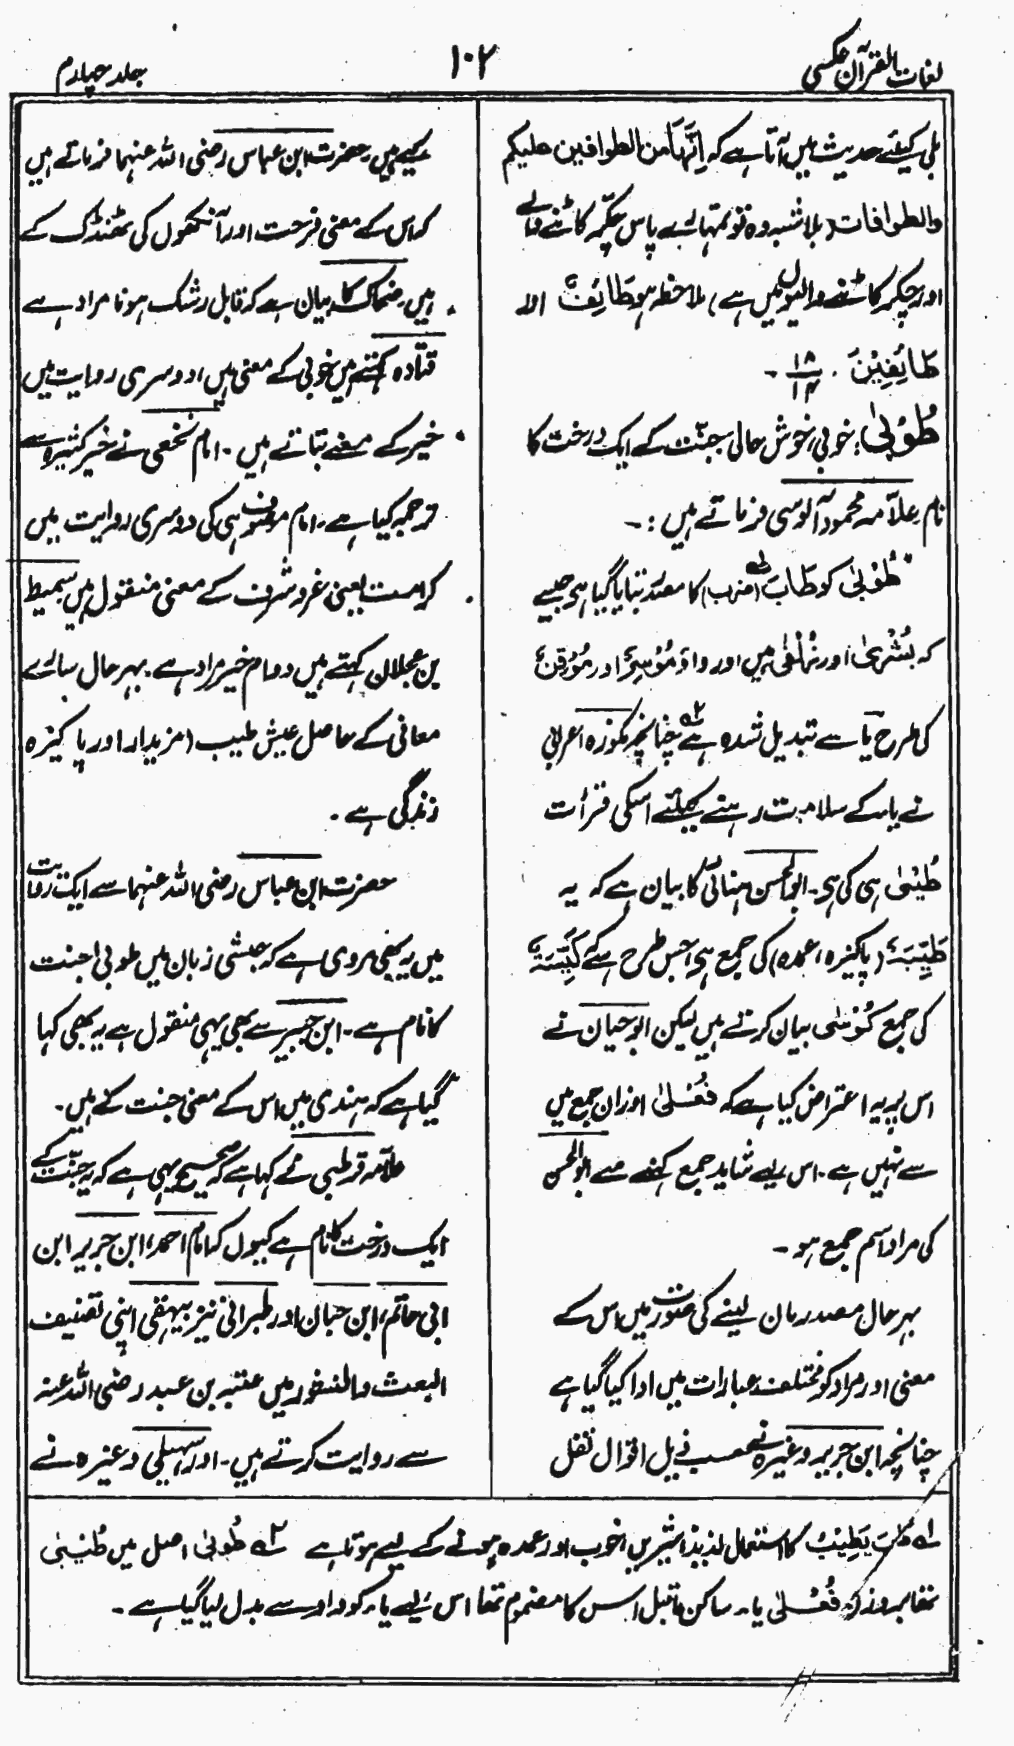 لغات القرآن عکسی
۱۰۲
جلد چہارم
بلی کیلئے حدیث میں آتا ہے کہ اِنَّہَا من الطوافین علیکم
والطوافات (بلا شبہ وہ تو تمہارے پاس چکّر کاٹنے والے
اور چکر کاٹنے والیوں میں ہے) ملاحظہ ہو طَائِفٌ الا
طَائِفِیْنَ . ۱۸/۱۴ -
طُوْبٰی: خوبی، خوش حالی جنت کے ایک درخت کا
نام علّامہ محمود آلوسی فرماتے ہیں :-
طُوْبٰی کو طَابَ لہ (ضرب) کا مصدر بتایا گیا ہی جیسے
کہ بُشْرٰی اور زُلْفٰی ہیں اور واؤ مُوْسِرٌ اور مُوْقِنٌ
کی طرح یا سے تبدیل شدہ ہے ۲ہ چنانچہ مکوزہ اعرابی
نے یاء کے سلامت رہنے کیلئے اسکی قرأت
طُیْبٰی ہی کی ہی۔ ابوالحسن ہنائی کا بیان ہے کہ یہ
طَیِّبَۃٌ (پاکیزہ، عمدہ) کی جمع ہی جس طرح سے کَیِّسَۃٌ
کی جمع کُوْسٰی بیان کرتے ہیں لیکن ابوحیان نے
اس پر یہ اعتراض کیا ہے کہ فُعْلٰی اوزان جمع میں
سے نہیں ہے۔ اس لیے شاید جمع کہنے سے ابوالحسن
کی مراد اسم جمع ہو۔
بہر حال مصدر مان لینے کی صورت میں اس کے
معنی اور مراد کو مختلف عبارات میں ادا کیا گیا ہے
چنانچہ ابن جریر وغیرہ نے حسب ذیل اقوال نقل
کیے ہیں، حضرت ابن عباس رضی اللہ عنہما فرماتے ہیں
کہ اس کے معنی فرحت اور آنکھوں کی ٹھنڈک کے
ہیں ضحاک کا بیان ہے کہ قابل رشک ہونا مراد ہے
قتادہ کہتے ہیں خوبی کے معنی ہیں اور دوسری روایت میں
خیر کے معنے بتاتے ہیں ۔ امام نخعی نے خیر کثیر سے
ترجمہ کیا ہے۔ امام موصوف ہی کی دوسری روایت میں
کرامت یعنی عز و شرف کے معنی منقول ہیں سمیط
بن عجلان کہتے ہیں دوام خیر مراد ہے۔ بہر حال سارے
معانی کے حاصل عیش طیب (مزیدار اور پاکیزہ
زندگی ہے ۔
حضرت ابن عباس رضی اللہ عنہما سے ایک روایت
میں یہ بھی مروی ہے کہ حبشی زبان میں طوبی جنت
کا نام ہے۔ ابن جبیر سے بھی یہی منقول ہے یہ بھی کہا
گیا ہے کہ ہندی میں اس کے معنی جنت کے ہیں۔
علّامہ قرطبی نے کہا ہے کہ صحیح یہی ہے کہ یہ جنّت کے
ایک درخت کا نام ہے کیوں کہ امام احمد، ابن جریر ابن
ابی حاتم، ابن حبان اور طبرانی نیز بیہقی اپنی تصنیف
البعث والنشور میں عتبہ بن عبد رضی اللہ عنہ
سے روایت کرتے ہیں۔ اور سہیلی وغیرہ نے
لہ طَابَ یَطِیْبُ کا استعمال لذیذ، شیریں، خوب اور عمدہ ہونے کے لیے ہوتا ہے ۲ہ طُوبٰی اصل میں طُیْبٰی
تھا بروزن فُعْلٰی یاء ساکن ماقبل اس کا مضموم تھا اس لیے یاء کو واو سے بدل لیا گیا ہے ۔